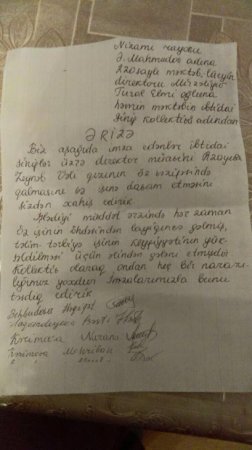 Nizami rayonu
Ə. Mahmudov adına
220 saylı məktəb-liseyin
direktoru Mürsəliyev
Tural Elmi oğluna
həmin məktəbin ibtidai
sinif kollektivi adından
ƏRİZƏ
Biz aşağıda imza edənlər ibtidai
siniflər üzrə direktor müavini Rzayeva
Zeynəb Vəli qızının öz vəzifəsində
qalmasını və işini davam etməsini
sizdən xahiş edirik.
İşlədiyi müddət ərzində hər zaman
öz işinin öhdəsindən layiqincə gəlmiş,
təlim-tərbiyə işinin keyfiyyətinin yük-
səldilməsi üçün əlindən gələni etmişdir.
Kollektiv olaraq ondan heç bir narazı-
lığımız yoxdur. İmzalarımızla bunu
təsdiq edirik
Behbudova
Kərimova Nuranə
Mehriban